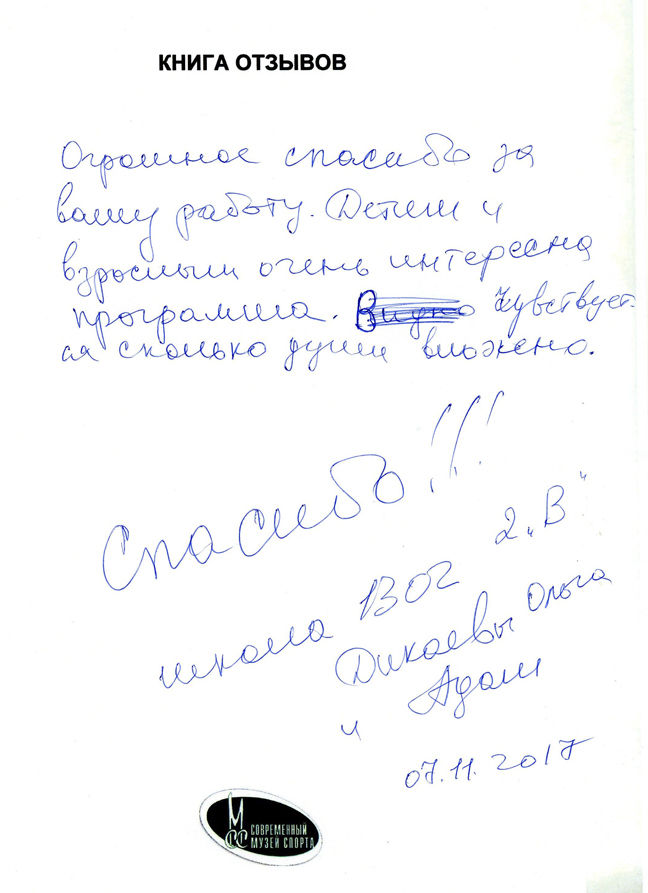 КНИГА ОТЗЫВОВ
Огромное спасибо за
вашу работу. Детям и
взрослым очень интересна
программа. Видно Чувствует-
ся сколько души вложено.
Спасибо!!!
школа 1302 2 „В"
Дикаевы Ольга
и Адам
07.11.2017
МСС СОВРЕМЕННЫЙ
МУЗЕЙ СПОРТА